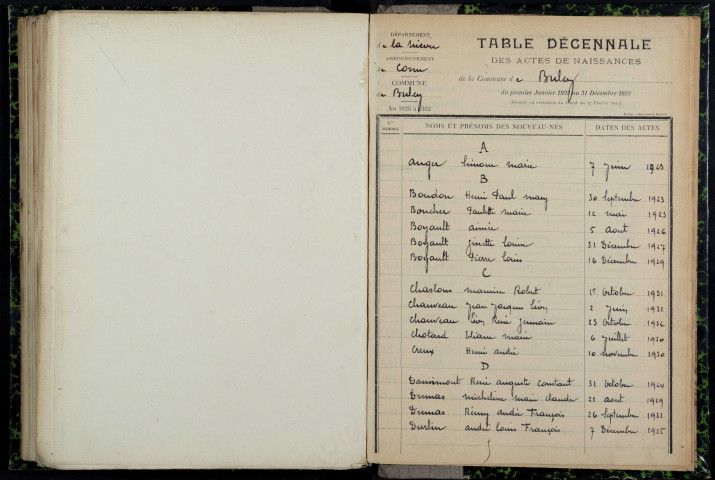 DÉPARTEMENT
de la Nièvre
ARRONDISSEMENT
de Cosne
COMMUNE
de Bulcy
An 1923 à 1932
TABLE DÉCENNALE
DES ACTES DE NAISSANCES
de la Commune de Bulcy
du premier Janvier 1923 au 31 Décembre 1932
Nos
NOMS ET PRÉNOMS DES NOUVEAU-NÉS
DATES DES ACTES
A
Anger Simone Marie 7 Juin 1923
B
Boudon Henri Paul Mary 30 Septembre 1923
Boucher Paulette Marie 12 Mai 1923
Boyault Aimée 5 Aout 1926
Boyault Ginette Louise 31 Décembre 1927
Boyault Pierre Louis 16 Décembre 1929
C
Chaslons Maurice Robert 15 Octobre 1931
Chauveau Jean Jacques Léon 2 Juin 1931
Chauveau Léon René Germain 23 Octobre 1924
Chotard Eliane Marie 6 Juillet 1930
Creux Henri André 10 Novembre 1930
D
René Auguste Constant 31 Octobre 1924
Dumas Micheline Marie Claude 21 Aout 1929
Dumas Rémy André François 26 Septembre 1931
Durlin André Louis François 7 Décembre 1925